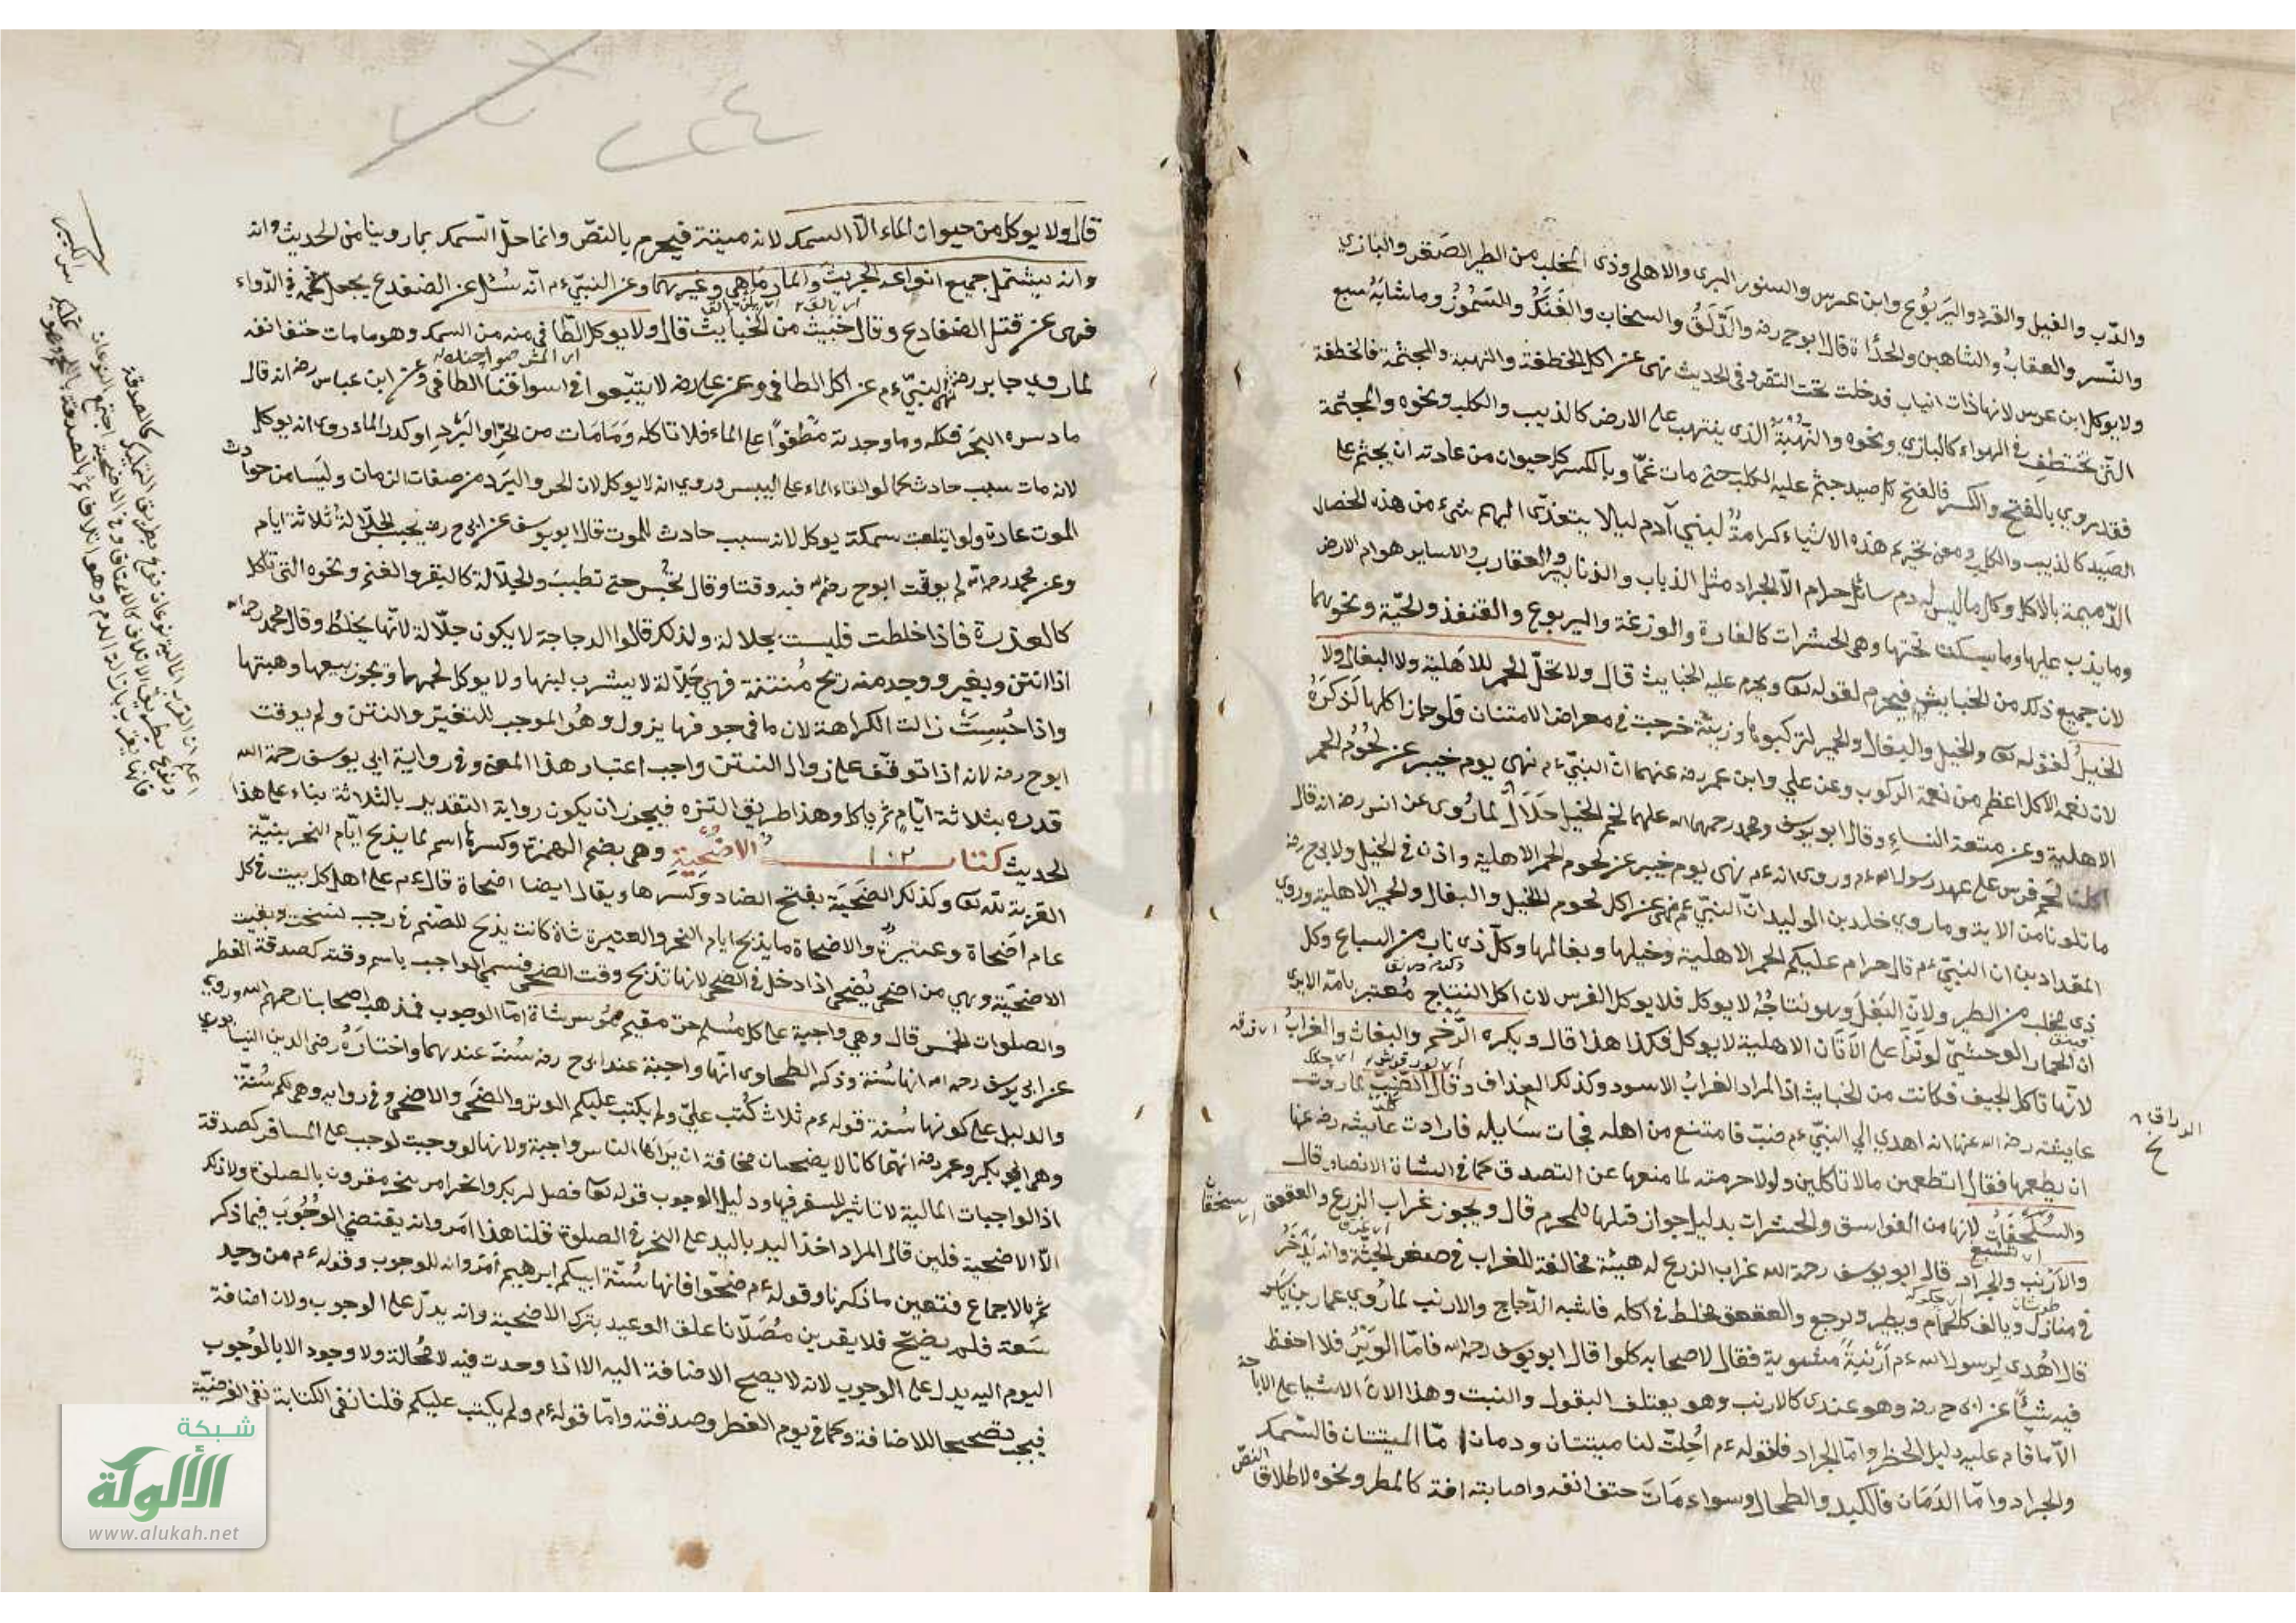 والدّب والفيل والقرد واليَربُوع وابن عرس والسنور البري والاهلي وذى المخلب من الطير الصَقر والبازي
والنّسر والعقابُ والشاهين والحدأة قال ابوح رضه والدَّلَقُ والسنجاب والفَنَكُ والسَّمُوْرُ وما شابَهُ سبع
ولا يوكل ابن عرس لانها ذات انياب فدخلت تحت النص وفى الحديث نهى عن اكل الخطفة والنهبة والمجثمة فالخطفة
التى تختطف فى الهواء كالبازي ونحوه والنُّهْبَةُ الذى ينتهب على الارض كالذيب والكلب ونحوه والمجثمة
فقد روي بالفتح والكسر فالفتح كل صيد جثم عليه الكلب حتى مات غمّا وبالكسر كل حيوان من عادته ان يجثم على
الصَيد كالذيب والكلب ومعنى تحريم هذه الاشياء كرامةٌ لبني آدم ليلا يتعدّى اليهم شىء من هذه الخصال
الذّميمة بالاكل وكل ما ليس له دم سائل حرام الاّ الجراد مثل الذباب والزنابير والعقارب وساير هوام الارض
وما يدب عليها وما يسكن تحتها وهى الحشرات كالفارة والوزغة واليربوع والقنفذ والحيّة ونحوها
لان جميع ذلك من الخبايث فيحرم لقوله تعا ويحرم عليهم الخبايث قال ولا تحلّ الحمر الاهلية ولا البغال ولا
الخيلُ لقوله تعا والخيل والبغال والحمير لتركبوها وزينة خرجت فى معرض الامتنان فلو جاز اكلها لذكَرَهُ
لان نعمة الاكل اعظم من نعمة الركوب وعن علي وابن عمر رضه عنهما انّ النبيّ ءم نهى يوم خيبر عن لحُوُم الحمر
الاهلية وعن متعة النساءِ وقال ابو يوسف ومحمد رحمهما الله عليهما لحم الخيل حَلَالٌ لما رُوى عن انس رضه انه قال
اكلنا لحم فرس على عهد رسول الله ءم وروى انه ءم نهى يوم خيبر عن لحوم الحمر الاهلية واذن فى الخيل ولابى ح رضه
ما تلونا من الاية وما روي خلد بن الوليد انّ النبيّ ءم نهى عن اكل لحوم الخيل والبغال والحمير الاهلية وروي
المقداد بن ان النبيّ ءم قال حرام عليكم الحمر الاهلية وخيلها وبغالها وكلّ ذى ناب من السباع وكل
ذى مخلب من الطير ولانّ البَغلَ وهو نتاجُهُ لا يوكل فلا يوكل الفرس لان اكل النتاج مُعتبر بامّه الايرى
ان الحمار الوحشيّ لو نَزَا على الاَتَان الاهلية لا يوكل فكذا هذا قال ويكره الرّخم والبغاث والغرابُ
لانّها تاكل الجيف فكانت من الخبايث اذ المراد الغرابُ الاسود وكذلك الغداف وقال الضّبّ لما روت
عايشة رضه الله عنها انه اهدي الى النبيّ ءم ضبّ فامتنع من اهله فجات سَايله فارادت عايشه رضه عنها
ان يطعمها فقال اتطعمين مالا تاكلين ولولا حرمته لما منعها عن التصدق كما فى الشاة الانصار قال
والسُلَحْفَاتُ لانها من الفواسق والحشرات بدليل جواز قتلها للمحرم قال ويجوز غراب الزرع والعقعق
والاَرنب والجراد قال ابو يوسف رحمة الله غراب الزرع له هيئة مخالفة للغراب فى صغر الجثّة وانه يدّخر
فى منازل ويالف كالحمام ويطير ويرجع والعقعق يخلط فى اكله فاشبه الدّجاج والارنب لما رُوي عمار بن ياسر
قال اُهدى لرسول الله ءم اَرْنَبةٌ مشوية فقال لاصحابه كلوا قال ابو يوسف رحمه الله فامّا الوبَرُ فلا احفظ
فيه شيئًا عن ابى ح رضه وهو عندى كالارنب وهو يعتلف البقول والنبت وهذا لان الاشيا على الاباحة
الاّ ما قام عليه دليل الحظر وامّا الجراد فلقوله ءم اُحِلتْ لنا ميتتان ودمان امّا الميتتان فالسّمك
والجراد وامّا الدَمَان فالكبد والطحال وسواء مَات حتف انفه واصابته افة كالمطر ونحوه لاطلاق النصّ
قال ولا يوكل من حيوان الماء الاّ السمك لانه ميتة فيحرم بالنصّ وانما حلّ السّمك بما روينا من الحديث وانه
وانه يشتمل جميع انواعه الجريث والمار مَاهِى وغيرهما وعن النبيّ ءم انّه سُئل عن الضفدع يجعل شحمه فى الدّواء
فنهى عن قتل الضفادع وقال خبيث من الخبايث قال ولا يوكل الطّافى منه من السمك وهو ما مات حتف انفه
لما روي جابر رضه نهى النبيّ ءم عن اكل الطافى وعن على رضه لا يتبّعوا فى اسواقنا الطافى وعن ابن عباس رضه انه قال
ما دسره البَحر فكله وما وجدته مَطْفوًا على الماء فلا تاكله وَمَا مَات من الحرّ او البَرْدِ او كدر الماء روى انه يوكل
لانه مات بسبب حادث كما لو القاه الماء على اليبس وروي انه لا يوكل لان الحر والبرد من صفات الزمان وليسا من حوادث
الموت عادة ولو ابتلعت سمكة يوكل لانه سبب حادث للموت قال ابو يوسف عن ابى ح رضه يحبس الجلّالةُ ثلاثة ايام
وعن محمد رحه الله لم يوقت ابوح رضه الله فيه وقتا وقال تحُبس حتى تطيبَ والجلّالة كالبقر والغنم ونحوه التى تاكل
كالعذرة فاذا خلطت فليست بجلالة ولذلك قالوا الدجاجة لا يكون جلّالة لانّها يخلطُ وقال محمد رحمه الله
اذا انتن ويغير ووجد منه ريح مُنتنة فهى جَلّالة لا يشرب لبنها ولا يوكل لحمها ويجوز بيعها وهبتها
واذا حُبِسَتْ زالت الكراهة لان ما فى جوفها يزول وهُو الموجب للتغيّر والنتن ولم يوقت
ابوح رضه لانه اذا توقف على زوال النتن واجب اعتبار هذا المعنى وفى رواية ابي يوسف رحمة الله
قدره بثلاثة ايّامٍ ثم ياكل وهذا طريق التنزه فيجوز ان يكون رواية التقدير بالثلاثة بناء على هذا
الحديث كتاب الاضحِيَة وهى بضم الهمزة وكسرها اسم لما يذبح ايّام النحر بنيّة
القربة لله تعا وكذلك الضَحيَة بفتح الضاد وكَسرها ويقال ايضا اضحاة قال ءم على اهل كل بيت فى كل
عام اَضحاة وعتيرةٌ والاضحاة ما يذبح ايام النحر والعتيرة شاة كانت يذبح للصّنم فى رجب نسخت وبقيت
الاضحيّة وهى من اضحى يُضحى اذا دخل فى الضحى لانها تذبح وقت الضحى فسمي الواجب باسم وقته كصدقة الفطر
والصلوات الخمس قال وهى واجبة على كل مُسلم حرّ مقيم مُوسر شاة امّا الوجوب فمذهب اصحابنا رحمهم الله وروي
عن ابى يوسف رحمه الله انها سُنة وذكر الطحاوى انّها واجبة عند ابى ح رضه سُنةّ عندهما واختارَهُ رضى الدين النيسابوري
والدليل على كونها سُنة قوله ءم ثلاث كُتب عليّ ولم يكتب عليكم الوتر والضحَى والاضحى وفى رواية وهى لكم سُنةّ
وهى ابو بكر وعمر رضه انّهما كانا لا يضحيان مخافة ان يراها الناس واجبة ولانها لو وجبت لوجب على المسافر كصدقة
اذ الواجبات المالية لا تاثير للسفر فيها ودليل الوجوب قوله تعا فصل لربك وانحر امر بنحر مقرون بالصلوة ولا ذلك
الاّ الاضحية فلين قال المراد اخذ اليد باليد على النحر فى الصلوة قلنا هذا امر وانه يقتضى الوُجُوَب فيما ذكر
ثم بالاجماع فتعين ما ذكرنا وقوله ءم ضحّوا فانها سُنّة ابيكم ابرهيم اَمر وانه للوجوب وقوله ءم من وجد
سَعة فلم يضحّ فلا يقربن مُصَلّانا علق الوعيد بترك الاضحية وانه يدلّ على الوجوب ولان اضافة
اليوم اليه يدل على الوجوب لانه لا يصح الاضافة اليه الا اذا وجدت فيه لا مُحالة ولا وجود الا بالوُجوب
فيجب تصحيحا للاضافة وكما فى يوم الفطر وصدقته وامّا قوله ءم ولم يكتب عليكم قلنا نفى الكتابة نفى الفرضيّة
شبكة
الألوكة
www.alukah.net